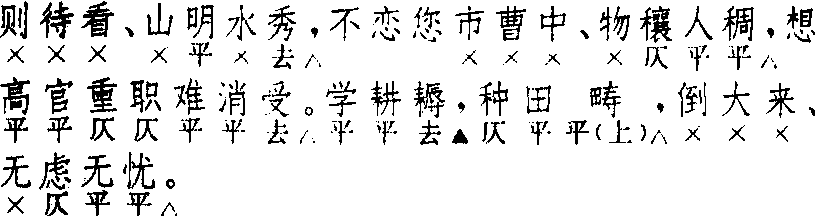 则待看、山明水秀，不恋您市曹中、物穰人稠，想
× × × × 平 × 去△ × × × × 仄 平 平△
高官重职难消受。学耕耨，种田畴，倒大来、
平 平 仄 仄 平 平 去△平 平 去▲仄 平 平（上）△ × × ×
无虑无忧。
× 仄 平 平△